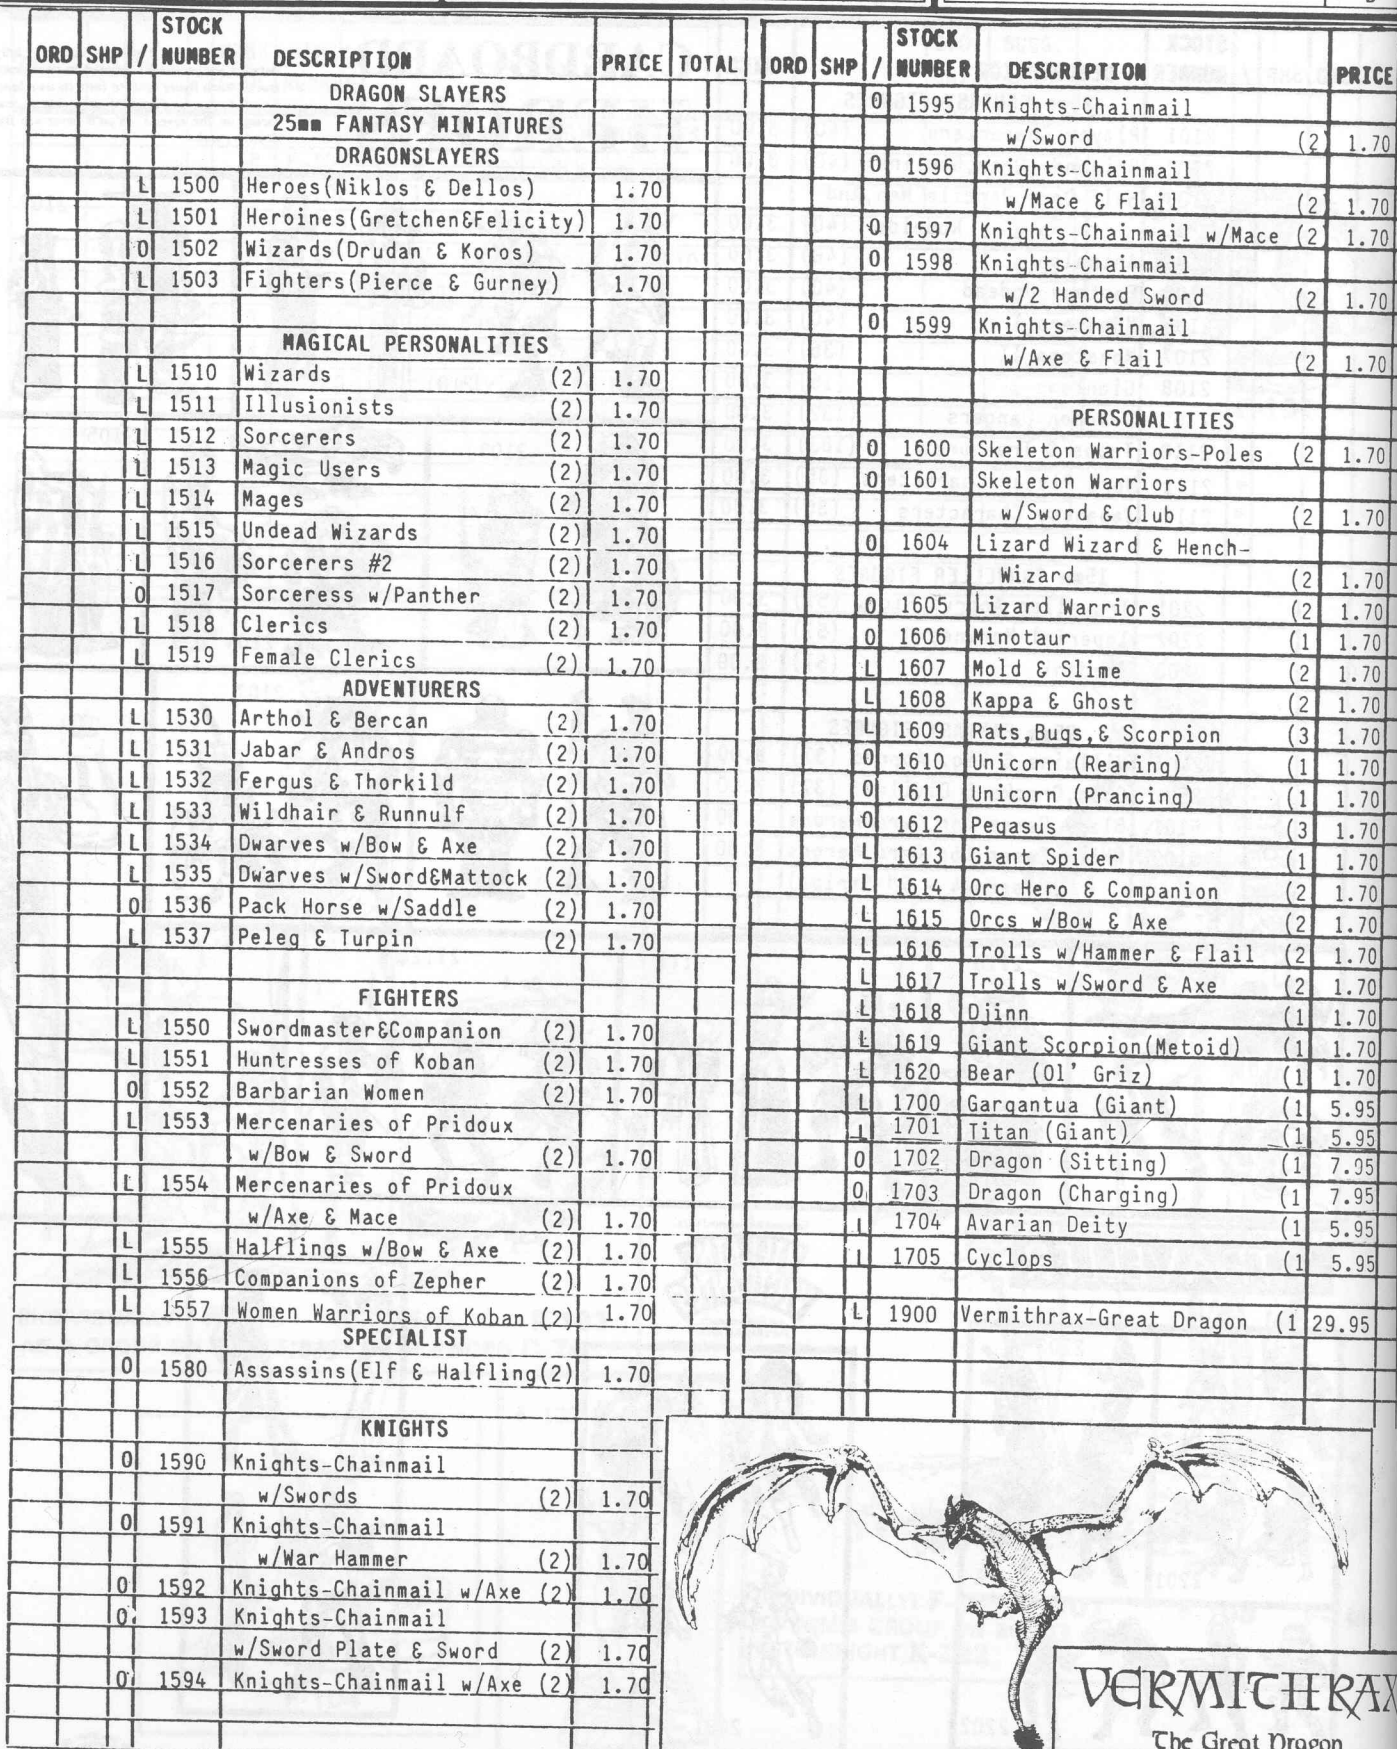 STOCK
ORD SHP / NUMBER DESCRIPTION PRICE TOTAL
DRAGON SLAYERS
25mm FANTASY MINIATURES
DRAGONSLAYERS
L 1500 Heroes(Niklos & Dellos) 1.70
L 1501 Heroines(Gretchen&Felicity) 1.70
O 1502 Wizards(Drudan & Koros) 1.70
L 1503 Fighters(Pierce & Gurney) 1.70
MAGICAL PERSONALITIES
L 1510 Wizards (2) 1.70
L 1511 Illusionists (2) 1.70
L 1512 Sorcerers (2) 1.70
L 1513 Magic Users (2) 1.70
L 1514 Mages (2) 1.70
L 1515 Undead Wizards (2) 1.70
L 1516 Sorcerers #2 (2) 1.70
O 1517 Sorceress w/Panther (2) 1.70
L 1518 Clerics (2) 1.70
L 1519 Female Clerics (2) 1.70
ADVENTURERS
L 1530 Arthol & Bercan (2) 1.70
L 1531 Jabar & Andros (2) 1.70
L 1532 Fergus & Thorkild (2) 1.70
L 1533 Wildhair & Runnulf (2) 1.70
L 1534 Dwarves w/Bow & Axe (2) 1.70
L 1535 Dwarves w/Sword&Mattock (2) 1.70
O 1536 Pack Horse w/Saddle (2) 1.70
L 1537 Peleg & Turpin (2) 1.70
FIGHTERS
L 1550 Swordmaster&Companion (2) 1.70
L 1551 Huntresses of Koban (2) 1.70
O 1552 Barbarian Women (2) 1.70
L 1553 Mercenaries of Pridoux
w/Bow & Sword (2) 1.70
L 1554 Mercenaries of Pridoux
w/Axe & Mace (2) 1.70
L 1555 Halflings w/Bow & Axe (2) 1.70
L 1556 Companions of Zepher (2) 1.70
L 1557 Women Warriors of Koban (2) 1.70
SPECIALIST
O 1580 Assassins(Elf & Halfling(2) 1.70
KNIGHTS
O 1590 Knights-Chainmail
w/Swords (2) 1.70
O 1591 Knights-Chainmail
w/War Hammer (2) 1.70
O 1592 Knights-Chainmail w/Axe (2) 1.70
O 1593 Knights-Chainmail
w/Sword Plate & Sword (2) 1.70
O 1594 Knights-Chainmail w/Axe (2) 1.70
STOCK
ORD SHP / NUMBER DESCRIPTION PRICE
O 1595 Knights-Chainmail
w/Sword (2) 1.70
O 1596 Knights-Chainmail
w/Mace & Flail (2) 1.70
O 1597 Knights-Chainmail w/Mace (2 1.70
O 1598 Knights-Chainmail
w/2 Handed Sword (2 1.70
O 1599 Knights-Chainmail
w/Axe & Flail (2 1.70
PERSONALITIES
O 1600 Skeleton Warriors-Poles (2 1.70
O 1601 Skeleton Warriors
w/Sword & Club (2 1.70
O 1604 Lizard Wizard & Hench-
Wizard (2 1.70
O 1605 Lizard Warriors (2 1.70
O 1606 Minotaur (1 1.70
L 1607 Mold & Slime (2 1.70
L 1608 Kappa & Ghost (2 1.70
L 1609 Rats,Bugs,& Scorpion (3 1.70
O 1610 Unicorn (Rearing) (1 1.70
O 1611 Unicorn (Prancing) (1 1.70
O 1612 Pegasus (3 1.70
L 1613 Giant Spider (1 1.70
L 1614 Orc Hero & Companion (2 1.70
L 1615 Orcs w/Bow & Axe (2 1.70
L 1616 Trolls w/Hammer & Flail (2 1.70
L 1617 Trolls w/Sword & Axe (2 1.70
L 1618 Djinn (1 1.70
L 1619 Giant Scorpion(Metoid) (1 1.70
L 1620 Bear (Ol' Griz) (1 1.70
L 1700 Gargantua (Giant) (1 5.95
L 1701 Titan (Giant) (1 5.95
O 1702 Dragon (Sitting) (1 7.95
O 1703 Dragon (Charging) (1 7.95
L 1704 Avarian Deity (1 5.95
L 1705 Cyclops (1 5.95
L 1900 Vermithrax-Great Dragon (1 29.95
VERMITHRAX
The Great Dragon